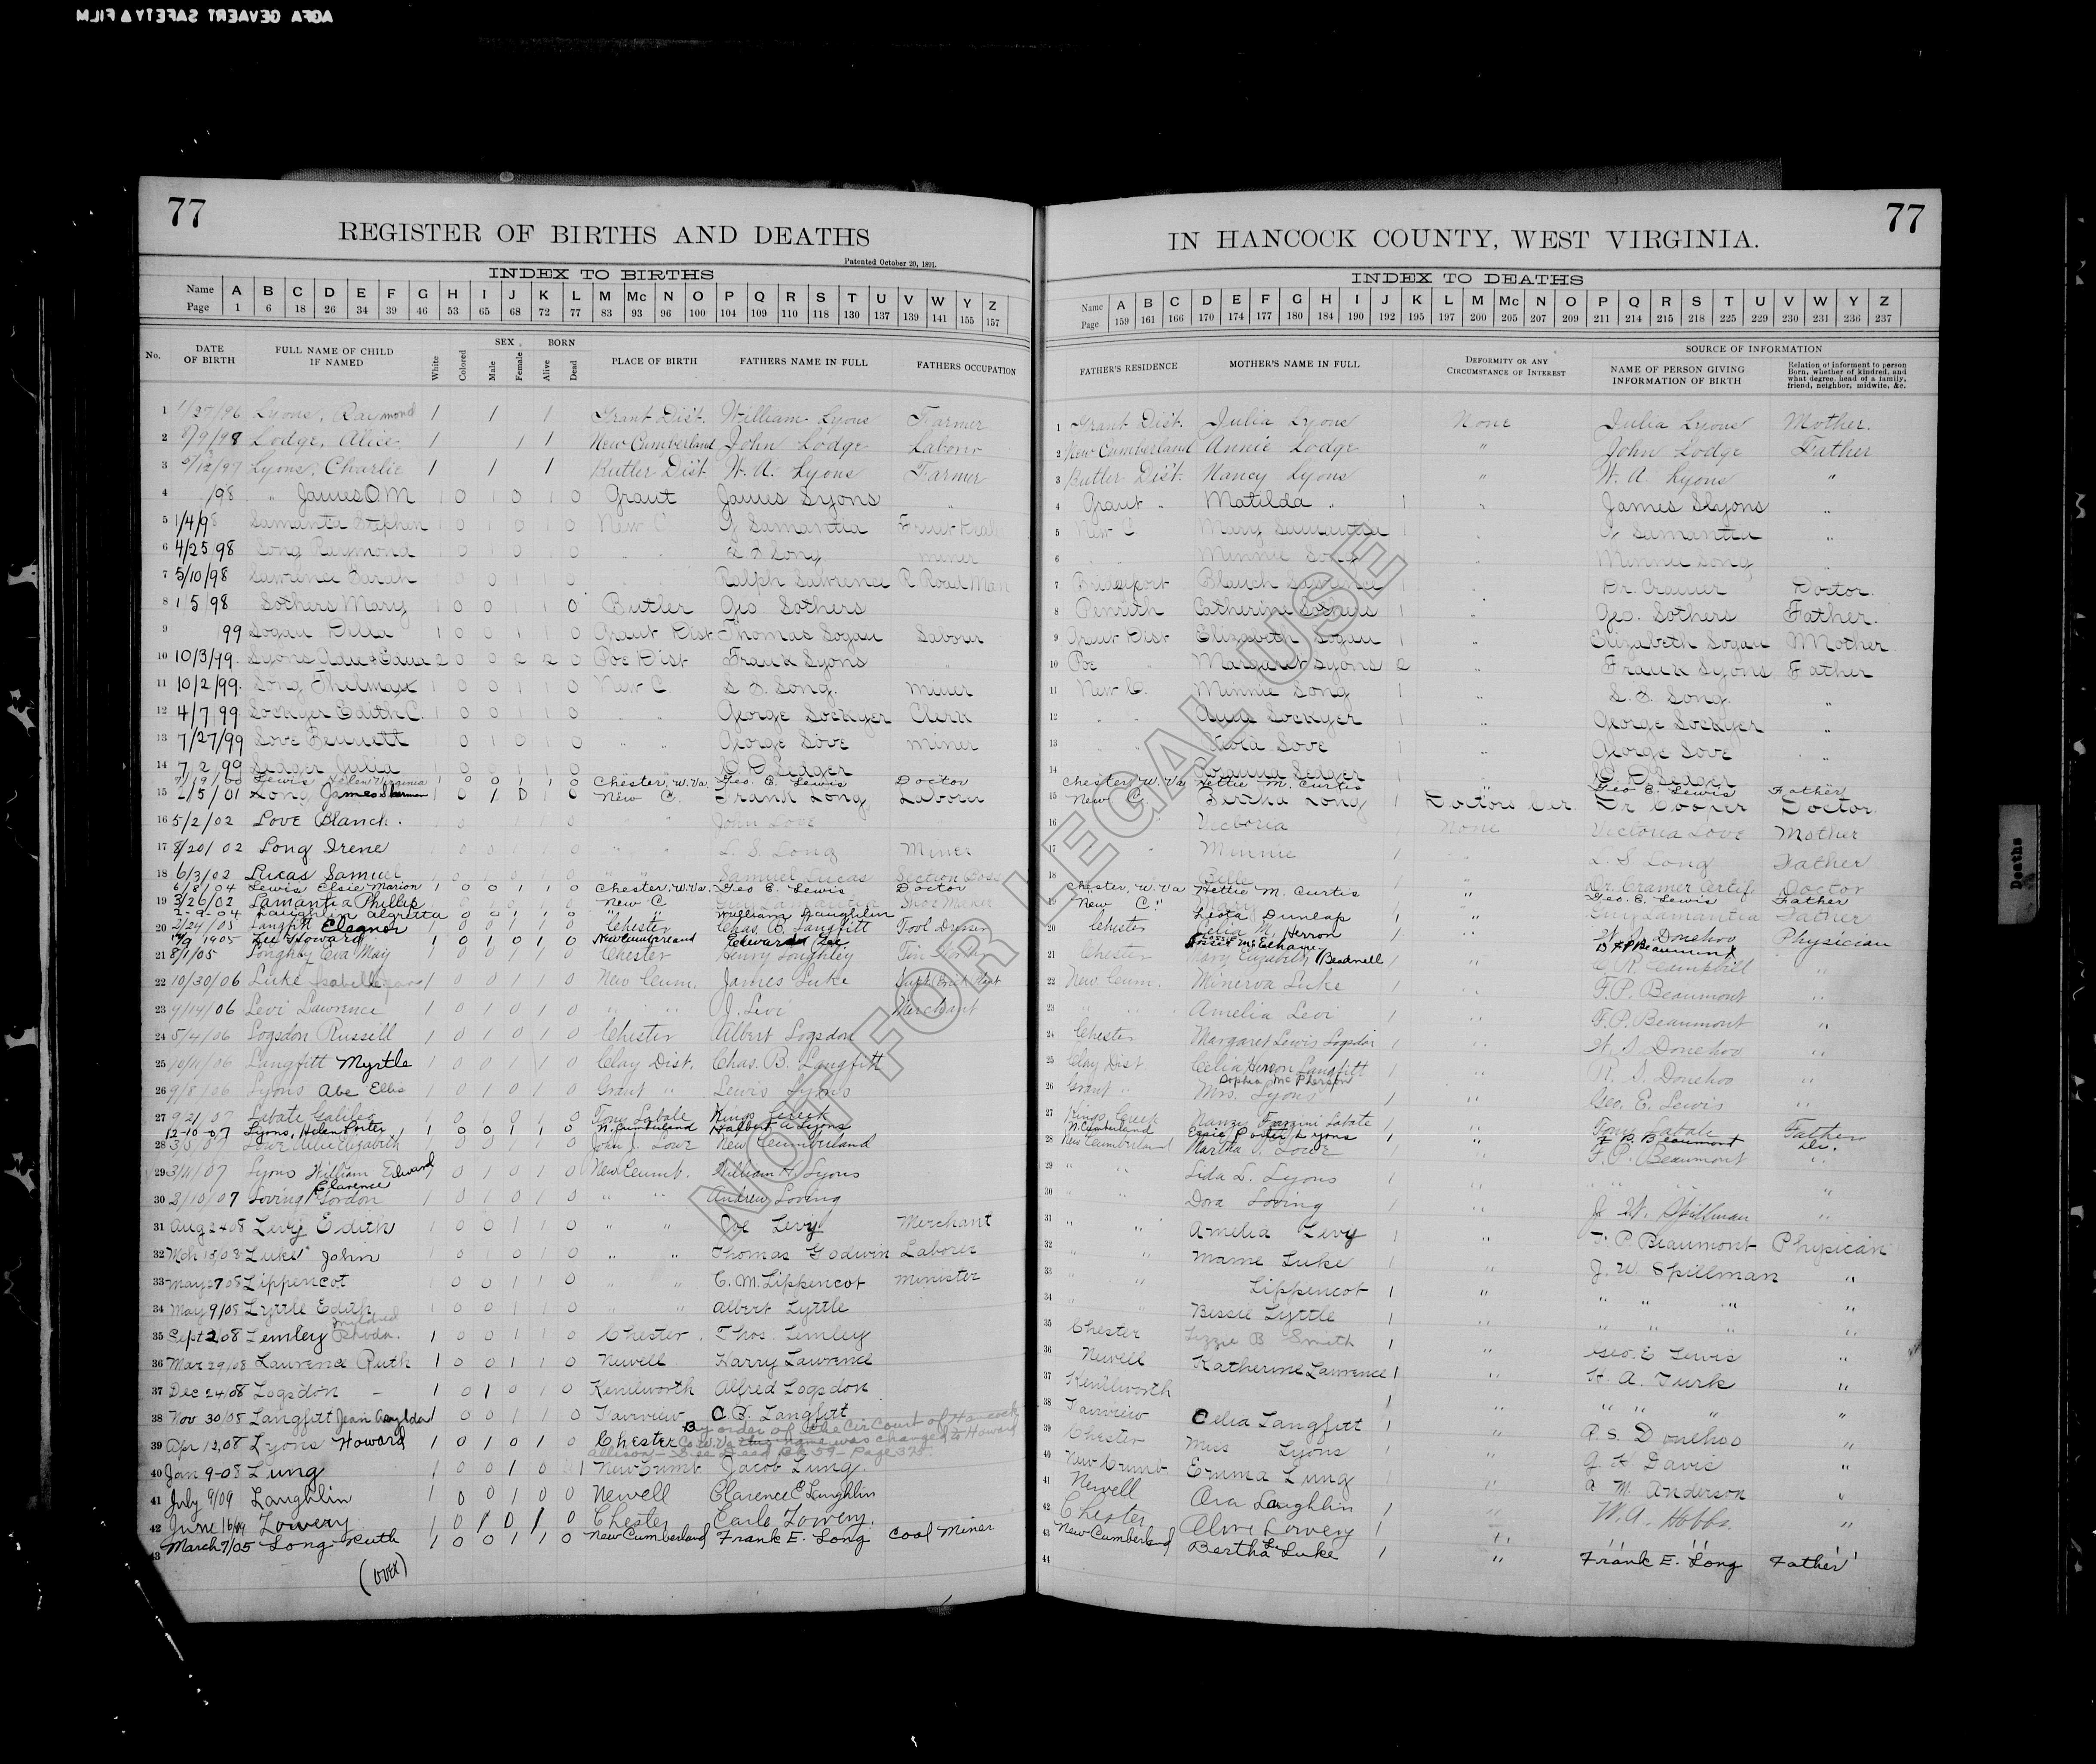 AGFA GEVAERT SAFETY FILM
77
REGISTER OF BIRTHS AND DEATHS
Patented October 20, 1891.
INDEX TO BIRTHS
Name A B C D E F G H I J K L M Mc N O P Q R S T U V W Y Z
Page 1 6 18 26 34 39 46 53 65 68 72 77 83 93 96 100 104 109 110 118 130 137 139 141 155 157
No. DATE OF BIRTH FULL NAME OF CHILD IF NAMED White Colored SEX Male Female BORN Alive Dead PLACE OF BIRTH FATHERS NAME IN FULL FATHERS OCCUPATION
1 1/27/96 Lyons, Raymond 1 1 1 Grant Dist. William Lyons Farmer
2 8/9/98 Lodge, Alice 1 1 1 New Cumberland John Lodge Laborer
3 5/12/97 Lyons, Charlie 1 1 1 Butler Dist. W. A. Lyons Farmer
4 /98 " James O M 1 0 1 0 1 0 Grant James Lyons "
5 1/4/98 Lamanta Stephen 1 0 1 0 1 0 New C Lamantia
6 4/25 98 Long Raymond 1 0 1 0 1 0 " " L S Long miner
7 5/10/98 Lawrence Sarah 0 0 1 1 0 Ralph Lawrence R Road Man
8 1 5 98 Lothers Mary 1 0 0 1 1 0 Butler Geo Lothers
9 99 Logan Della 1 0 0 1 1 0 Grant Dist Thomas Logan Labour
10 10/3/99. Lyons Ada & Edna 2 0 0 2 2 0 Poe Dist Frank Lyons "
11 10/2/99. Long Thelma 1 0 0 1 1 0 New C L. S. Long. miner
12 4/7/99 Lockyer Edith C. 1 0 0 1 1 0 " " George Lockyer Clerk
13 7/27/99 Love Bennett 0 1 0 1 0 " " George Love miner
14 7 2 99 Ledger Julia 1 0 0 1 1 0 Ledger
7/19/00 Lewis Helen Virginia 1 0 0 1 1 0 Chester, W. Va. Geo. E. Lewis Doctor
15 2/5/01 Long James Sherman 1 0 1 0 1 0 New C. Frank Long Laborer
16 5/2/02 Love Blanch. " " John Love
17 8/20/02 Long Irene " " L. S. Long Miner
18 6/3/02 Lucas Samuel " " Samuel Lucas Section Boss
6/8/04 Lewis Elsie Marion 1 0 0 1 1 0 Chester, W. Va. Geo E. Lewis Doctor
19 3/26/02 Lamantia Phillip New C Guy Lamantia Shoe Maker
2-9-04 Laughlin Algretta 1 0 0 1 1 0 " " William Laughlin
20 2/24/05 Langfitt Eleanor 1 0 0 1 1 0 Chester Chas. B. Langfitt Tool Dresser
1905 Lee Howard 1 0 1 0 1 0 New Cumberland Edward Lee
21 8/1/05 Longhley Eva May 1 0 0 1 1 0 Chester Henry Longhley
22 10/30/06 Luke Isabelle 1 0 0 1 1 0 New Cum. James Luke
23 4/14/06 Levi Lawrence 1 0 1 0 1 0 " " J. Levi Merchant
24 5/4/06 Logsdon Russill 1 0 1 0 1 0 Chester Albert Logsdon
25 10/11/06 Langfitt Myrtle 1 0 0 1 1 0 Clay Dist. Chas. B. Langfitt
26 9/8/06 Lyons Abe Ellis 1 0 1 0 1 0 Grant " Lewis Lyons
27 9 21/07 Labate Galileo 1 0 1 0 1 0 Tony Labate Kings Creek
12-10-07 Lyons, Helen Porter, 1 0 0 1 1 0 N. Cumberland Halbert A Lyons
28 3/5/07 Lowe Alice Elizabeth 0 0 1 1 0 John J. Lowe New Cumberland
29 3/11/07 Lyons William Edward 0 1 0 1 0 New Cumb. William H Lyons
Clarence
30 3/10/07 Loving Gordon 1 0 1 0 1 0 " " Andrew Loving
31 Aug 24 08 Levy Edith 1 0 0 1 1 0 " " Joe Levy Merchant
32 Mch 13, 08 Luke John 1 0 1 0 1 0 " " Thomas Godwin Laborer
33 May 27 08 Lippencot 1 0 0 1 1 0 " " C. M. Lippencot Minister
34 May 9/08 Lyttle Edith 1 0 0 1 1 0 " " Albert Lyttle
Mildred
35 Sept 2 08 Lemley Rhoda. 1 0 0 1 1 0 Chester. Thos. Lemley
36 Mar 29/08 Lawrence Ruth 1 0 0 1 1 0 Newell Harry Lawrence
37 Dec 24 08 Logsdon - 1 0 1 0 1 0 Kenilworth Alfred Logsdon
38 Nov 30/08 Langfitt Jean 1 0 0 1 1 0 Fairview C. B. Langfitt
By order of the Cir Court of Hancock
39 Apr 12, 08 Lyons Howard 1 0 1 0 1 0 Chester Co. W. Va this name was changed to Howard
Allison - See Deed Bk 59 - Page 375.
40 Jan 9-08 Lung 1 0 0 1 0 1 New Cumb Jacob Lung.
41 July 9/09 Laughlin 1 0 0 1 0 0 Newell Clarence E Laughlin
42 June 16/09 Lowery 1 0 1 0 1 0 Chester Carle Lowery.
43 March 7/05 Long Ruth 1 0 0 1 1 0 New Cumberland Frank E. Long Coal Miner
(over)
77
IN HANCOCK COUNTY, WEST VIRGINIA.
INDEX TO DEATHS
Name A B C D E F G H I J K L M Mc N O P Q R S T U V W Y Z
Page 159 161 166 170 174 177 180 184 190 192 195 197 200 205 207 209 211 214 215 218 225 229 230 231 236 237
FATHER'S RESIDENCE MOTHER'S NAME IN FULL DEFORMITY OR ANY CIRCUMSTANCE OF INTEREST SOURCE OF INFORMATION NAME OF PERSON GIVING INFORMATION OF BIRTH Relation of informent to person Born, whether of kindred, and what degree, head of a family, friend, neighbor, midwife, &c.
1 Grant Dist. Julia Lyons None Julia Lyons Mother.
2 New Cumberland Annie Lodge " John Lodge Father
3 Butler Dist. Nancy Lyons " W. A. Lyons "
4 Grant " Matilda " 1 " James Lyons "
5 New C Mary Lamantia 1 " Lamantia "
6 " Minnie Long " Minnie Long "
7 Bridgeport Blanch Lawrence 1 " Dr. Cramer Doctor.
8 Penrith Catherine Lothers 1 " Geo. Lothers Father.
9 Grant Dist Elizabeth Logan 1 " Elizabeth Logan Mother
10 Poe " Margaret Lyons 2 " Frank Lyons Father
11 New C. Minnie Long 1 " L. S. Long. "
12 " " Lockyer 1 " George Lockyer "
13 " " Viola Love 1 " George Love "
14 Ledger Ledger
Chester, W. Va Hettie M. Curtis Geo E. Lewis Father
15 New C. Bertha Long 1 Doctors Cer. Dr Cooper Doctor.
16 Victoria None Victoria Love Mother
17 " Minnie 1 L. S Long Father
18 Belle Dr. Cramer Certif Doctor
Chester, W. Va Hettie M. Curtis 1 " Geo. E. Lewis Father
19 New C. " Mary Guy Lamantia Father
Leota Dunlap 1 "
20 Chester Celia M. Herron 1 " Donehoo Physician
21 Chester Mary Elizabeth Beadnell 1 Campbell
22 New Cum. Minerva Luke 1 " F. P. Beaumont "
23 " " Amelia Levi 1 " F. P. Beaumont "
24 Chester Margaret Lewis Logsdon 1 " Donehoo "
25 Clay Dist Celia Herron Langfitt 1 " R. S. Donehoo "
Sophia McPherson
26 Grant " Mrs. Lyons 1 " Geo. E. Lewis "
27 Kings Creek Nanzi Farzini Labate 1 " Tony Labate Father
N. Cumberland Essie Porter Lyons 1 " F. P. Beaumont Dr.
28 New Cumberland Martha J. Lowe " F. P. Beaumont "
29 " " Lida L. Lyons 1 " " " "
30 " " Dora Loving 1 " J. W. Spillman "
31 " " Amelia Levy 1 " F. P. Beaumont Physican
32 " " Mame Luke 1 " J. W. Spillman "
33 " " Lippencot 1 " " " " "
34 " Bessie Lyttle 1 " " " " "
35 Chester Lizzie B Smith 1 " Geo. E Lewis "
36 Newell Katherine Lawrence 1 " H. A. Turk "
37 Kenilworth 1 " " " " "
38 Fairview Celia Langfitt 1 " R. S. Donehoo "
39 Chester Miss Lyons 1 " G. H. Davis "
40 New Cumb Emma Lung 1 " A M. Anderson "
41 Newell Ora Laughlin 1 " W. A. Hobbs. "
42 Chester Olive Lowery 1 " " " "
43 New Cumberland Bertha Luke 1 " Frank E. Long Father
44
NOT FOR LEGAL USE
Deaths